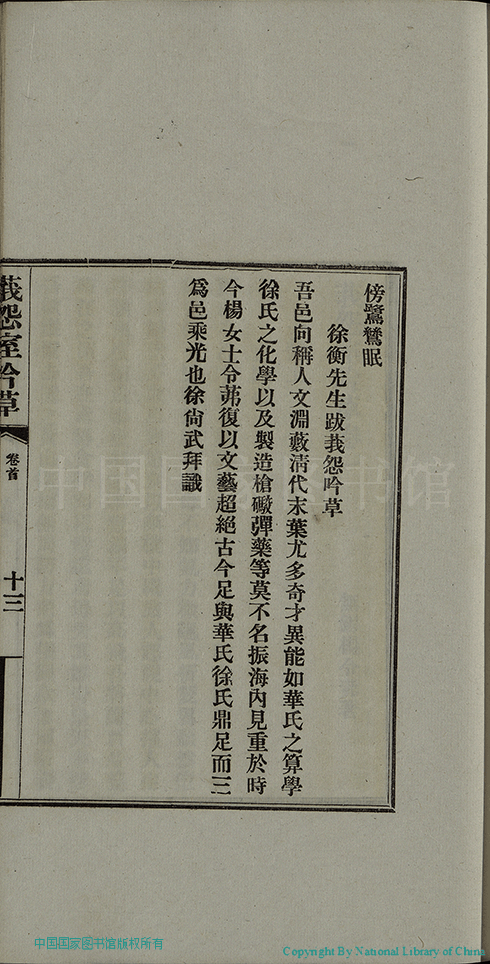 傍鷺鷥眠
徐衡先生跋莪怨吟草
吾邑向稱人文淵藪淸代末葉尤多奇才異能如華氏之算學
徐氏之化學以及製造槍礮彈藥等莫不名振海內見重於時
今楊女士令茀復以文藝超絕古今足與華氏徐氏鼎足而三
爲邑乘光也徐尙武拜識
莪怨室吟草
卷首
十三
中国国家图书馆
中国国家图书馆版权所有
Copyright By National Library of China